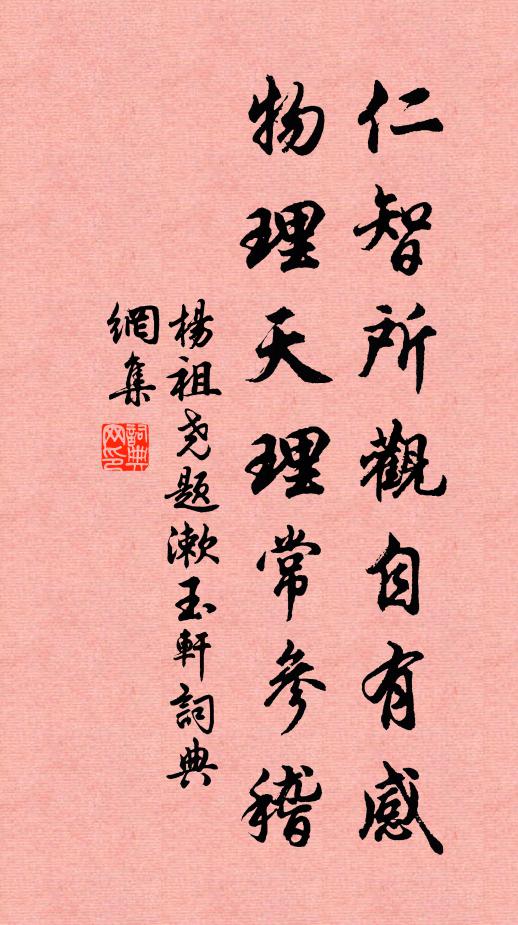 仁智所觀自有感
物理天理常參稽
楊祖尧題漱玉軒詞典
網集
詞典
网印